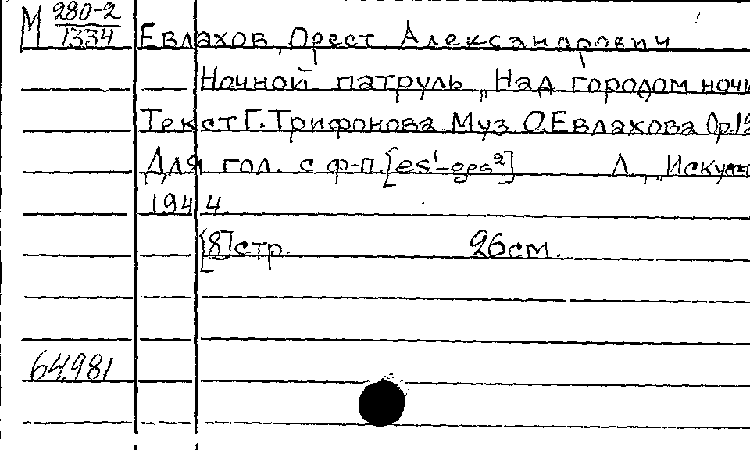 М 280-2
1334
Евлахов, Орест Александрович
Ночной патруль „Над городом ночн
Текст Г. Трифонова Муз О. Евлахова Op. 12
Для гол. с ф-п. [es¹-ges²] Л., „Искус
1944
[8] стр. 26 см.
64.981